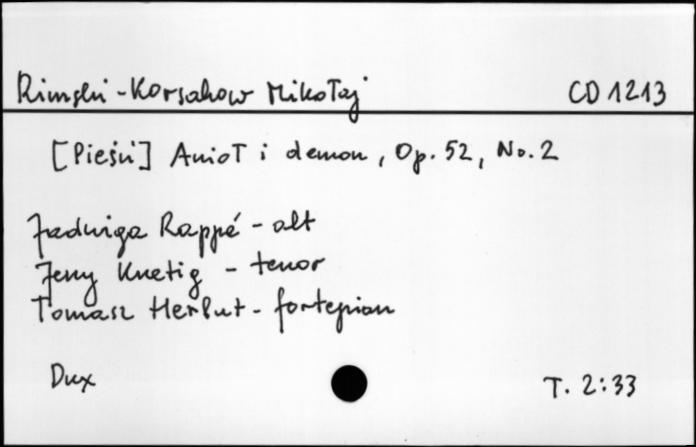 Rimski-Korsakow Mikołaj CD 1213
[Pieśń] Anioł i demon, Op. 52, No. 2
Jadwiga Rappé - alt
Jerzy Knetig - tenor
Tomasz Herbut - fortepian
Dux T. 2:33